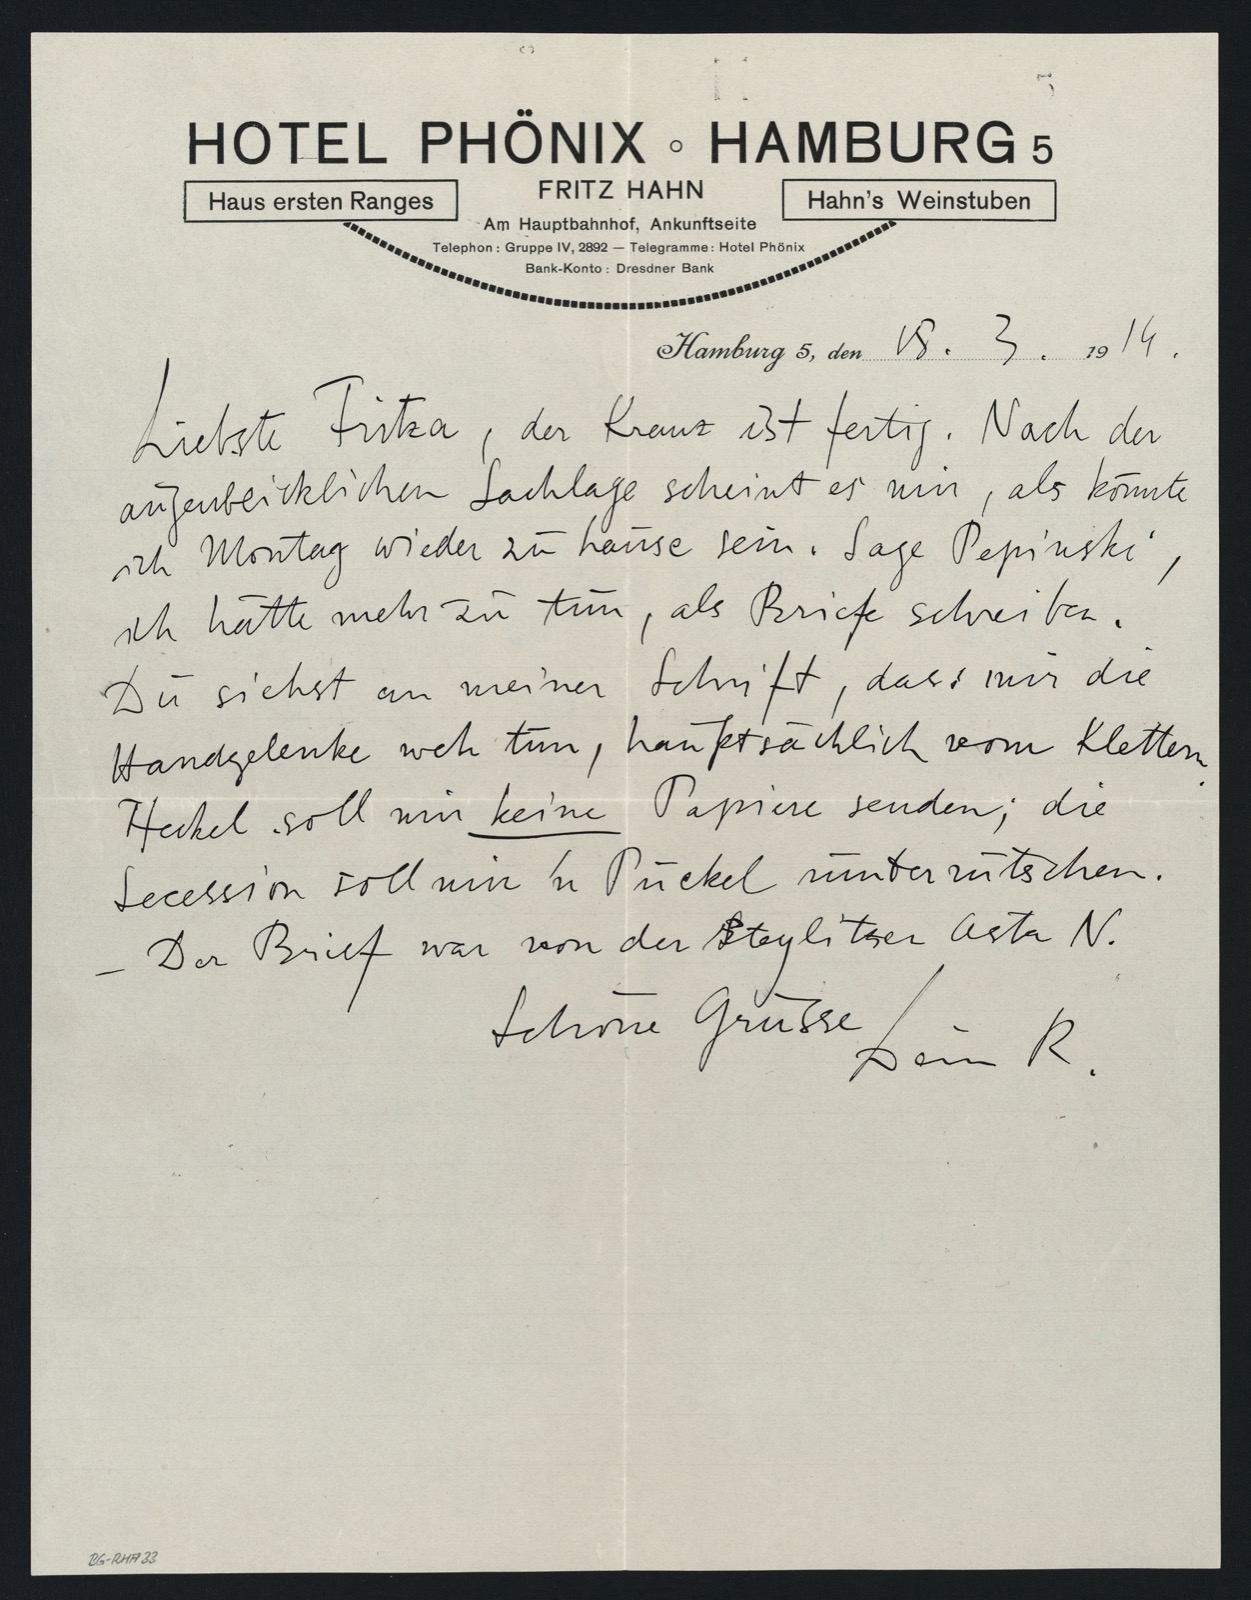 HOTEL PHÖNIX ○ HAMBURG 5
Haus ersten Ranges
FRITZ HAHN
Hahn's Weinstuben
Am Hauptbahnhof, Ankunftseite
Telephon: Gruppe IV, 2892 — Telegramme: Hotel Phönix
Bank-Konto: Dresdner Bank
Hamburg 5, den 18. 3. 1914.
Liebste Fritza, der Kranz ist fertig. Nach der
augenblicklichen Sachlage scheint es mir, als könnte
ich Montag wieder zu hause sein. Sage Pepinski,
ich hätte mehr zu tun, als Briefe schreiben.
Du siehst an meiner Schrift, dass mir die
Handgelenke weh tun, hauptsächlich vom Klettern.
Heckel soll mir keine Papiere senden; die
Secession soll mir 'n Puckel runterrutschen.
– Der Brief war von der Steglitzer Asta N.
Schöne Grüsse Dein R.
BG-RHA 33